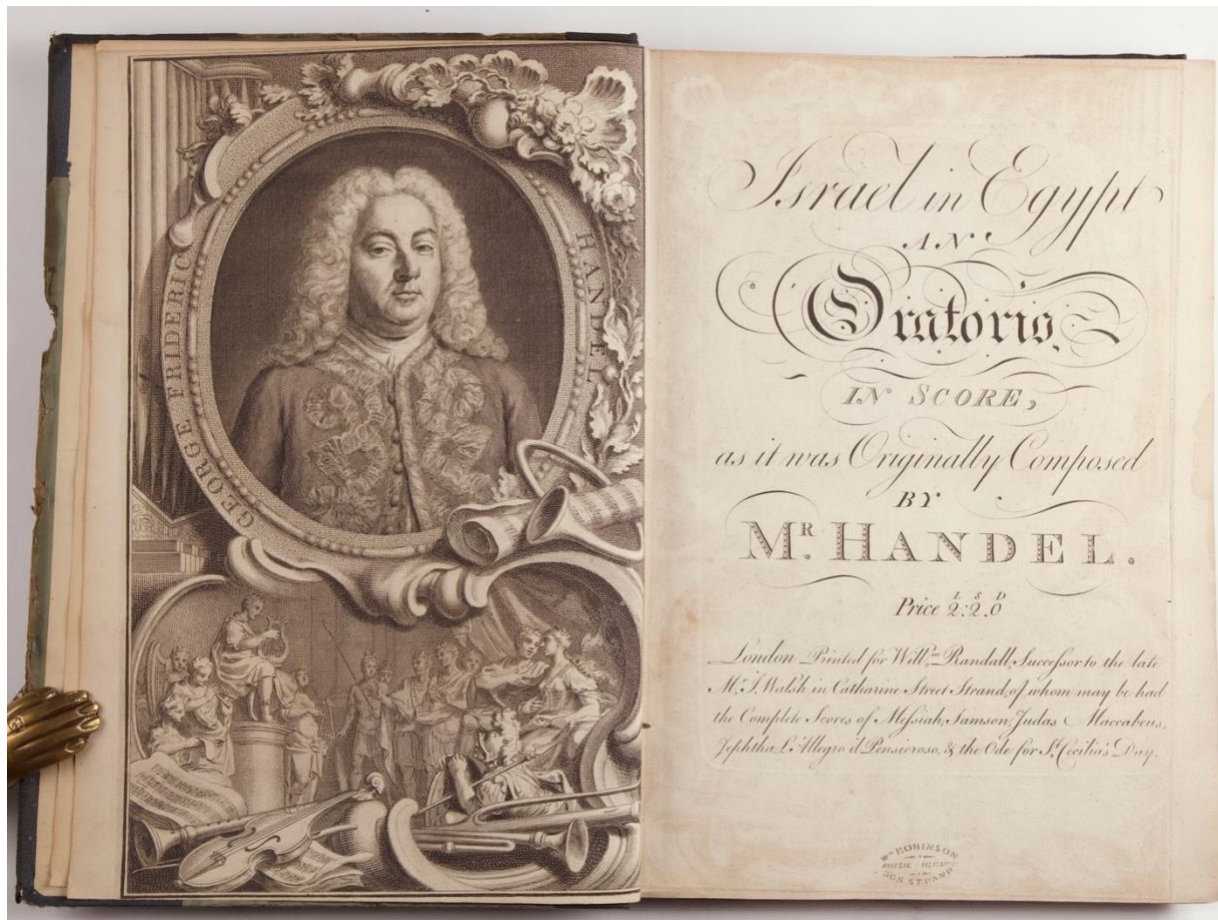 GEORGE FRIDERIC HANDEL
Israel in Egypt
AN
Oratorio,
IN SCORE,
as it was Originally Composed
BY
MR. HANDEL.
L S D
Price 2:2.0
London Printed for Willm. Randall, Succeſsor to the late
Mr. J. Walsh in Catharine Street Strand, of whom may be had
the Complete Scores of Meſsiah, Samson, Judas Maccabeus,
Jephtha, L'Allegro il Pensieroso, & the Ode for St. Cecilia's Day.
Wm ROBINSON
MUSIC LIBRARY
STRAND